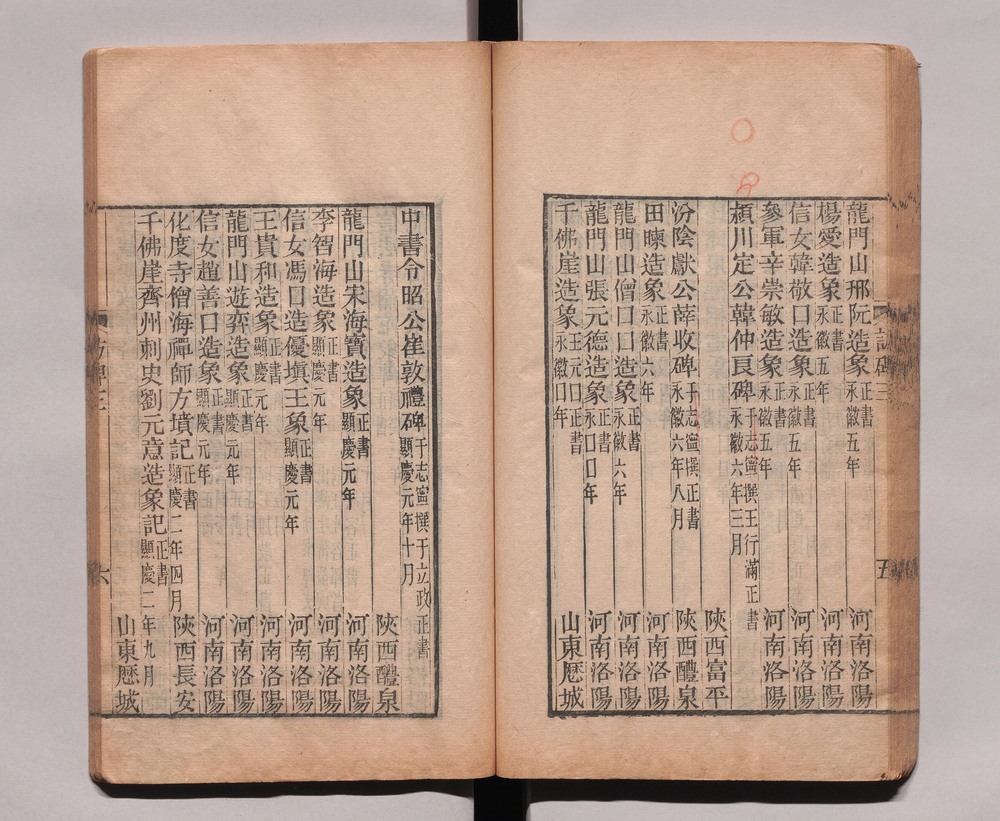 龍門山邢阮造象 正書 永徽五年 河南洛陽
楊愛造象 正書 永徽五年 河南洛陽
信女韓敬口造象 正書 永徽五年 河南洛陽
參軍辛崇敏造象 正書 永徽五年 河南洛陽
潁川定公韓仲良碑 于志寧撰王行滿正書 永徽六年三月
陝西富平
汾陰獻公薛收碑 于志寧撰正書 永徽六年八月 陝西醴泉
田暕造象 正書 永徽六年 河南洛陽
龍門山僧口口造象 正書 永徽六年 河南洛陽
龍門山張元德造象 正書 永口口年 河南洛陽
千佛崖造象 王元口正書 永徽口年 山東歷城
中書令昭公崔敦禮碑 于志寧撰于立政正書 顯慶元年十月
陝西醴泉
龍門山宋海寶造象 正書 顯慶元年 河南洛陽
李智海造象 正書 顯慶元年 河南洛陽
信女馮口造優塡王象 正書 顯慶元年 河南洛陽
王貴和造象 正書 顯慶元年 河南洛陽
龍門山遊弈造象 正書 顯慶元年 河南洛陽
信女趙善口造象 正書 顯慶元年 河南洛陽
化度寺僧海禪師方墳記 正書 顯慶二年四月 陝西長安
千佛崖齊州刺史劉元意造象記 正書 顯慶二年九月
山東歷城
六